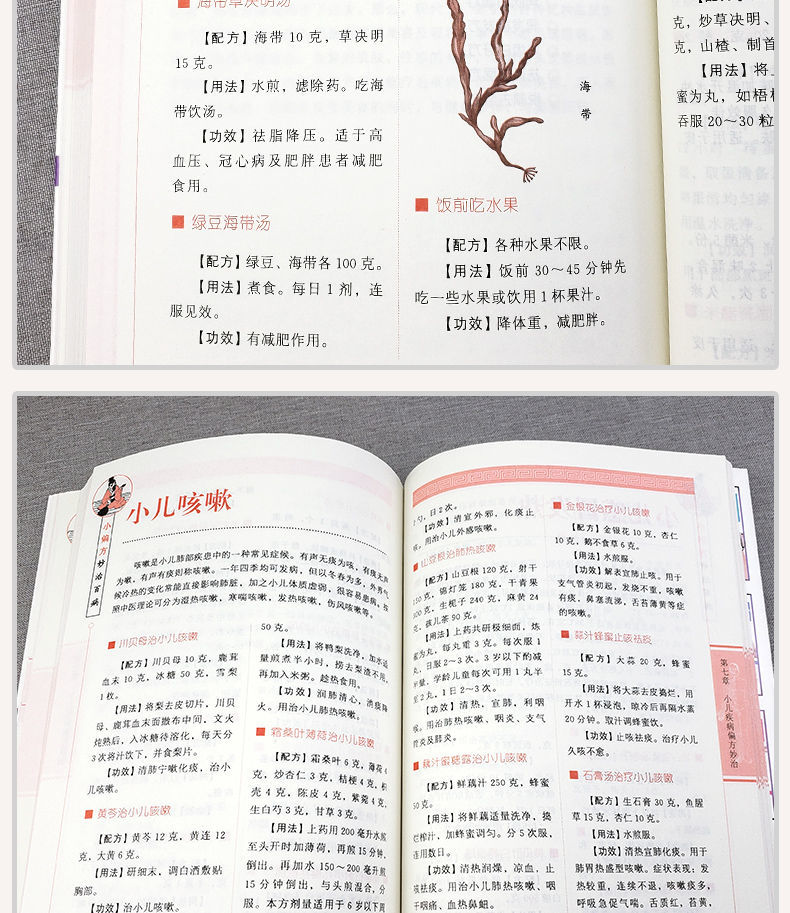 海带草决明汤
【配方】海带 10 克，草决明
15 克。
【用法】水煎，滤除药。吃海
带饮汤。
【功效】祛脂降压。适于高
血压、冠心病及肥胖患者减肥
食用。
绿豆海带汤
【配方】绿豆、海带各 100 克。
【用法】煮食。每日 1 剂，连
服见效。
【功效】有减肥作用。
海带
饭前吃水果
【配方】各种水果不限。
【用法】饭前 30～45 分钟先
吃一些水果或饮用 1 杯果汁。
【功效】降体重，减肥胖。
克，炒草决明、
克，山楂、制首
【用法】将
蜜为丸，如梧
吞服 20～30 粒
小偏方妙治百病
小儿咳嗽
咳嗽是小儿肺部疾患中的一种常见症候。有声无痰为咳，有痰无声
为嗽，有声有痰则称咳嗽。一年四季均可发病，但以冬春为多，外界气
候冷热的变化常能直接影响肺脏，加之小儿体质虚弱，很容易患病。按
照中医理论可分为湿热咳嗽，寒喘咳嗽，发热咳嗽，伤风咳嗽等。
川贝母治小儿咳嗽
【配方】川贝母 10 克，鹿茸
血末 10 克，冰糖 50 克，雪梨
1 枚。
【用法】将梨去皮切片，川贝
母、鹿茸血末面撒布中间，文火
炖熟后，入冰糖待溶化，每天分
3 次将汁饮下，并食梨片。
【功效】清肺宁嗽化痰，治小
儿咳嗽。
黄芩治小儿咳嗽
【配方】黄芩 12 克，黄连 12
克，大黄 6 克。
【用法】研细末，调白酒敷贴
胸部。
【功效】治小儿咳嗽。
50 克。
【用法】将鸭梨洗净，加水适
量煎煮半小时，捞去梨渣不用，
再加入米粥。趁热食用。
【功效】润肺清心，消痰降
火。用治小儿肺热咳嗽。
霜桑叶薄荷治小儿咳嗽
【配方】霜桑叶 6 克，薄荷 4
克，炒杏仁 3 克，桔梗 4 克，枳
壳 4 克，陈皮 4 克，紫菀 4 克，
生白芍 3 克，甘草 3 克。
【用法】上药用 200 毫升水煎
至头开时加薄荷，再煎 15 分钟，
倒出。再加水 150～200 毫升煎
15 分钟倒出，与头煎混合，分
服。本方剂量适用于 6 岁以下
匀，日 2 次。
【功效】清宣外邪，化痰止
咳。用治小儿外感咳嗽。
山豆根治肺热咳嗽
【配方】山豆根 120 克，射干
150 克，锦灯笼 180 克，干青果
300 克，生栀子 240 克，麻黄 24
克，孩儿茶 90 克。
【用法】上药共研极细面，炼
蜜为丸，每丸重 3 克。每次服 1
丸，日服 2～3 次。3 岁以下酌减
半量，学龄儿童每次可用 1 丸半
至 2 丸，1 日 2～3 次。
【功效】清热，宣肺，利咽
咳。用治肺热咳嗽，咽炎、支气
管炎及肺炎。
藕汁蜜糖露治小儿咳嗽
【配方】鲜藕汁 250 克，蜂蜜
50 克。
【用法】将鲜藕适量洗净，捣
烂榨汁，加蜂蜜调匀。分 5 次服，
连用数日。
【功效】清热润燥，凉血，止
咳祛痰。用治小儿肺热咳嗽、咽
干咽痛、血热鼻衄。
金银花治疗小儿咳嗽
【配方】金银花 10 克，杏仁
10 克，鹅不食草 6 克。
【用法】水煎服。
【功效】解表宣肺止咳。用于
支气管炎初起，发烧不重，咳嗽
有痰，鼻塞流涕，舌苔薄黄等症
的咳嗽。
蒜汁蜂蜜止咳祛痰
【配方】大蒜 20 克，蜂蜜
15 克。
【用法】将大蒜去皮捣烂，用
开水 1 杯浸泡，晾冷后再隔水蒸
20 分钟。取汁调蜂蜜饮。
【功效】止咳祛痰。治疗小儿
久咳不愈。
石膏汤治疗小儿咳嗽
【配方】生石膏 30 克，鱼腥
草 15 克，杏仁 10 克。
【用法】水煎服。
【功效】清热宣肺化痰。用于
肺胃热盛型咳嗽。症状表现：发
热较重，连续不退，咳嗽痰多，
呼吸急促气喘。舌质红，苔黄，
第七章 小儿疾病偏方妙治